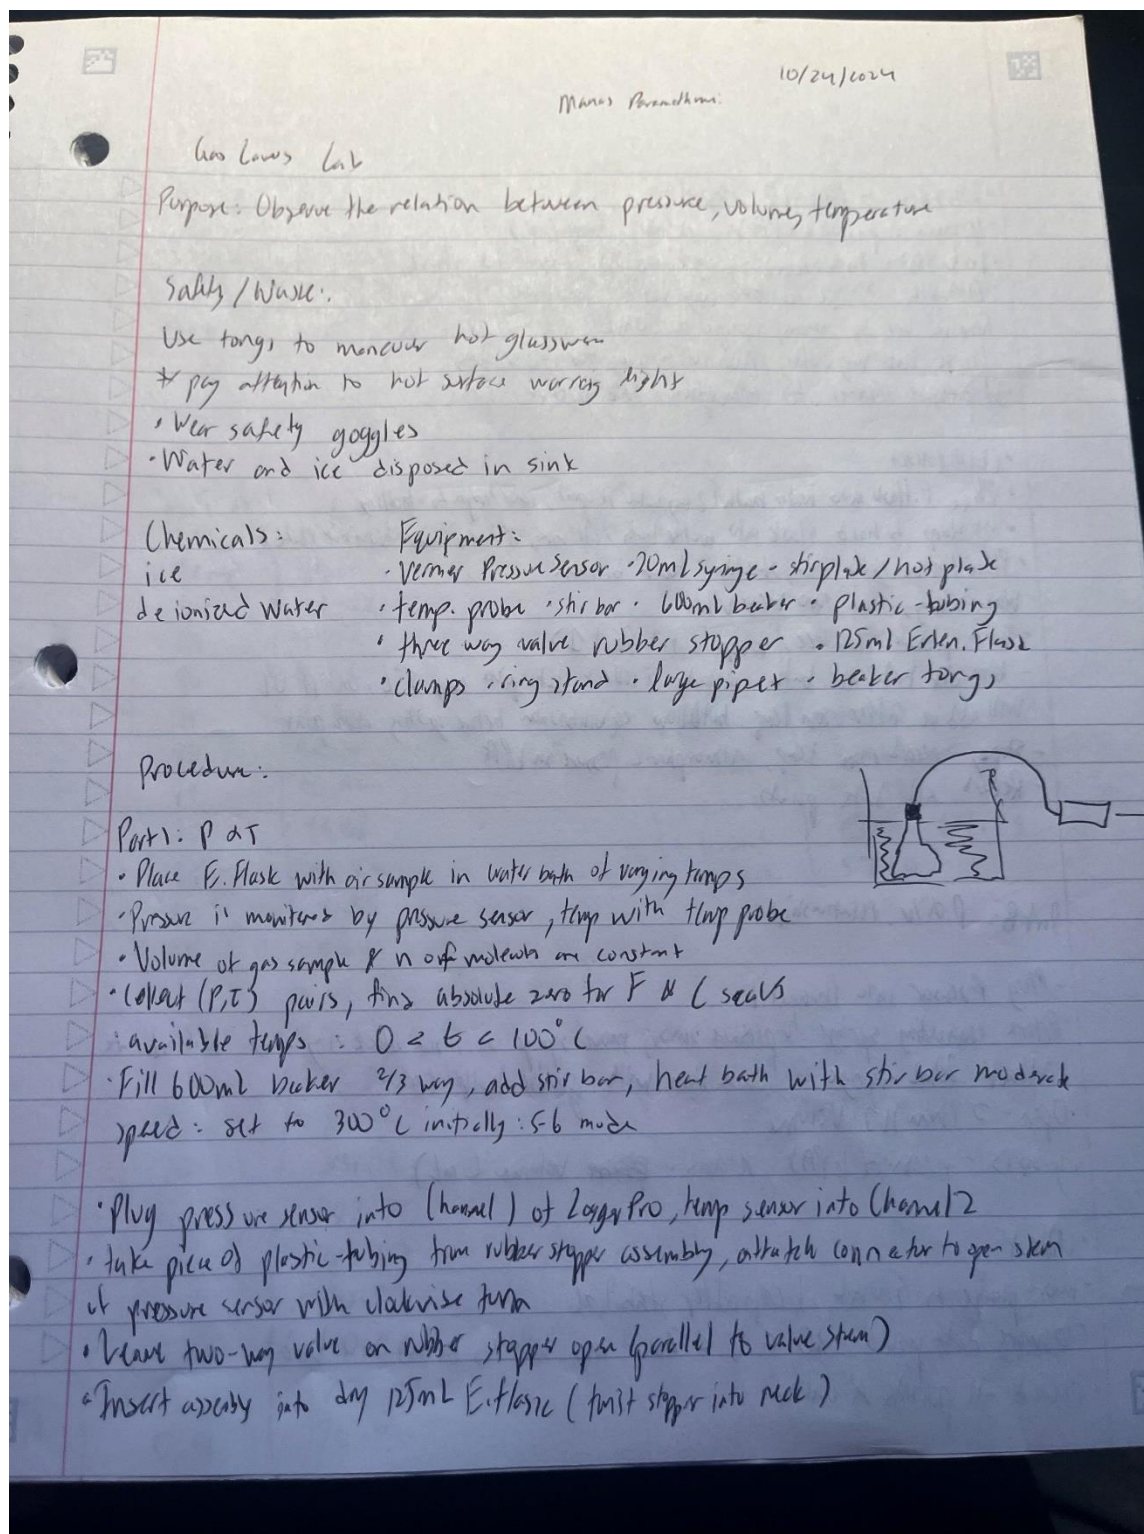 10/24/2024
Manas
Gas Laws Lab
Purpose: Observe the relation between pressure, volume, temperature
Safety / Waste:
Use tongs to maneuver hot glassware
* pay attention to hot surface warning light
• Wear safety goggles
• Water and ice disposed in sink
Chemicals: Equipment:
ice • Vernier Pressure Sensor • 20mL syringe • stirplate / hot plate
deionized water • temp. probe • stir bar • 600ml beaker • plastic-tubing
• three way valve rubber stopper • 125ml Erlen. Flask
• clamps • ring stand • large pipet • beaker tongs
Procedure:
Part 1: P α T
• Place E. Flask with air sample in water bath of varying temps
• Pressure is monitored by pressure sensor, temp with temp probe
• Volume of gas sample & n of molecules are constant
• Collect (P,T) pairs, find absolute zero for F & C scales
: available temps : 0 < t < 100°C
• Fill 600ml beaker 2/3 way, add stir bar, heat bath with stir bar moderate
speed: set to 300°C initially: 5-6 mode
• Plug pressure sensor into Channel 1 of LoggerPro, temp sensor into Channel 2
• take piece of plastic-tubing from rubber stopper assembly, attatch connector to open stem
of pressure sensor with clockwise turn
• Leave two-way valve on rubber stopper open (parallel to valve stem)
• Insert assembly into dry 125mL E. flask (twist stopper into neck)